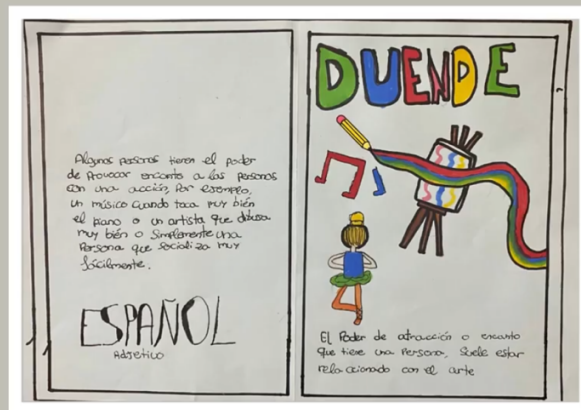 Algunas personas tienen el poder
de provocar encanto a las personas
con una acción, Por ejemplo,
un músico cuando toca muy bién
el piano o un artista que dibuja
muy bién o simplemente una
Persona que socializa muy
fácilmente.
ESPAÑOL
Adjetivo
DUENDE
El Poder de atracción o encanto
que tiene una Persona, Suele estar
relacionado con el arte